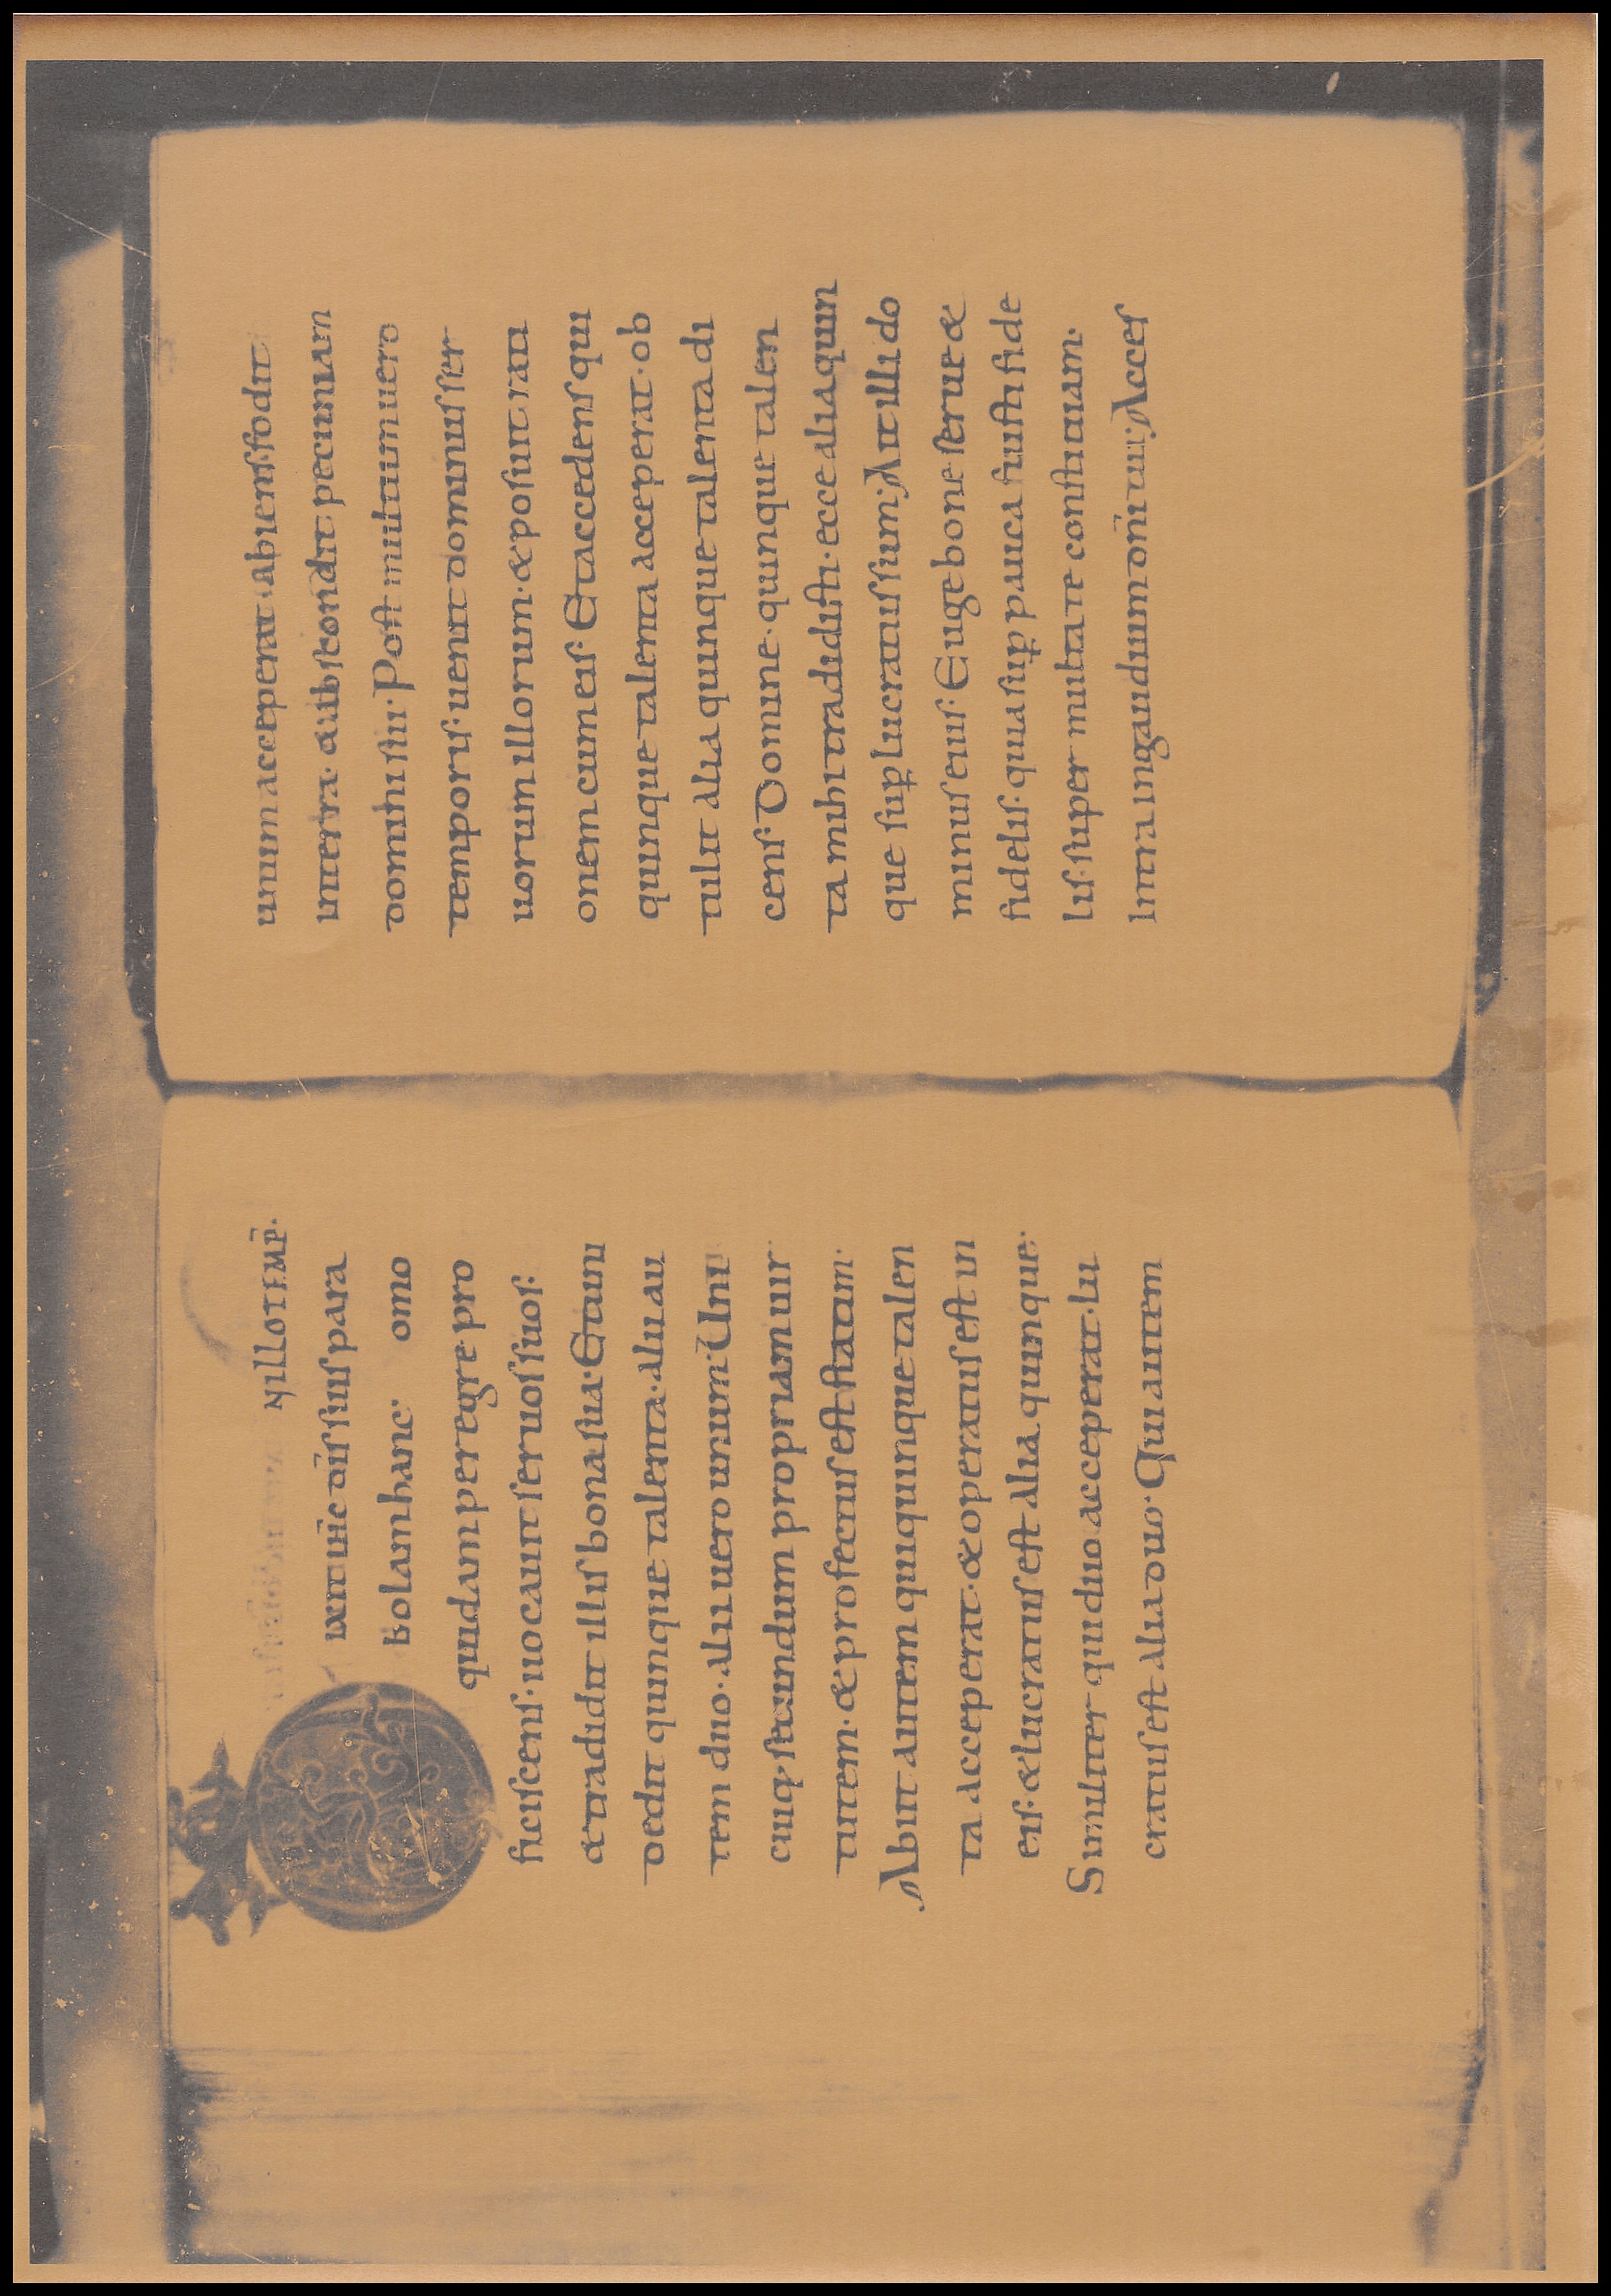 N ILLO TEMP̄.
DIXIT IH̄C DIS suis para
bolam hanc· omo
quidam peregre pro
ficiscens· uocauit seruos suos:
& tradidit illis bona sua· Et uni
dedit quinque talenta· alii au
tem duo· alii uero unum· Uni
cuiq; secundum propriam uir
tutem· & profectus est statim·
Abiit autem qui quinque talen
ta acceperat· & operatus est in
eis· & lucratus est alia quinque·
Similiter qui duo acceperat· lu
cratus est alia duo· Qui autem
unum acceperat· abiens fodit
in terra· & abscondit pecuniam
domini sui· Post multum uero
temporis· uenit dominus ser
uorum illorum· & posuit rati
onem cum eis· Et accedens qui
quinque talenta acceperat· ob
tulit alia quinque talenta di
cens· Domine· quinque talen
ta mihi tradidisti· ecce alia quin
que sup̱ lucratus sum; Ait illi do
minus eius· Euge bone serue &
fidelis· quia sup̱ pauca fuisti fide
lis· super multa te constituam·
Intra in gaudium dn̄i tui; Acces